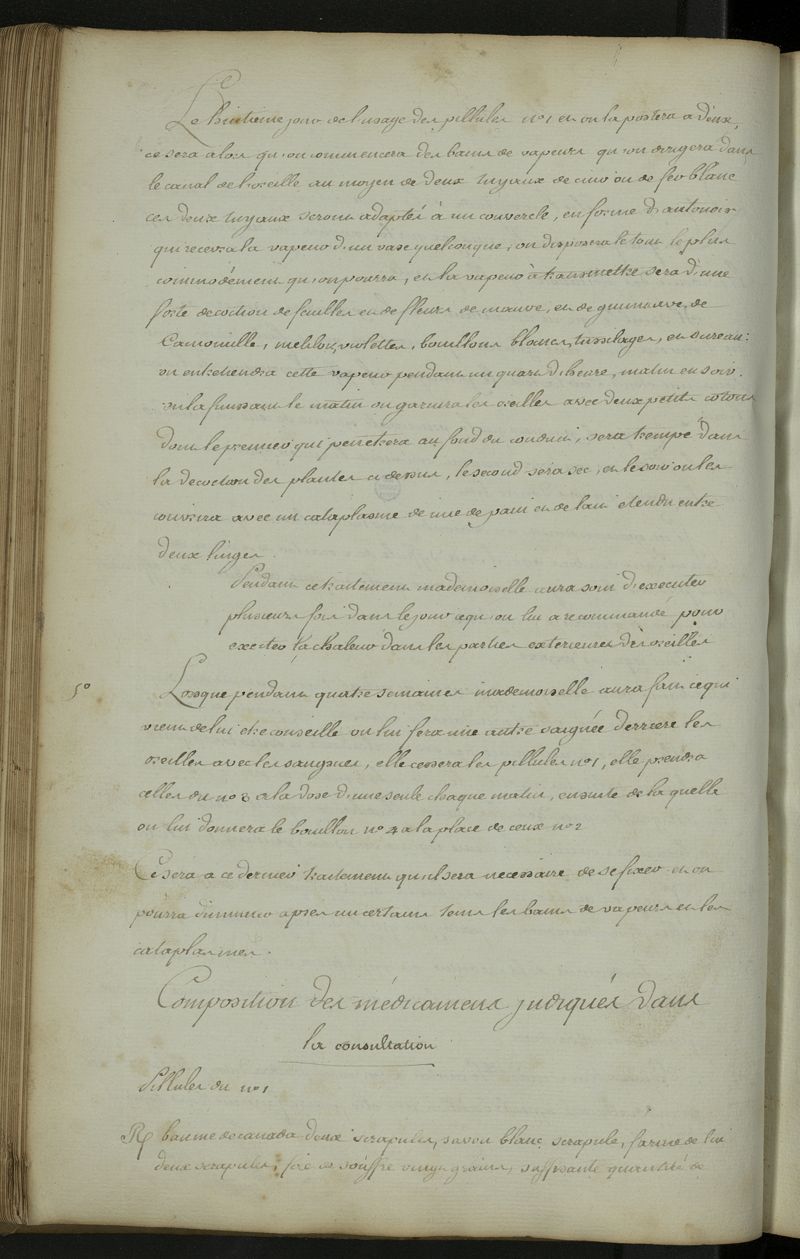 Le huitieme jour de l'usage des pillules n° 1 en on la portera a deux,
ce sera alors qu'on commencera des bains de vapeurs qu'on dirigera dans
le canal de l'oreille au moyen de deux tuyaux de cuir ou de fer blanc
ces deux tuyaux seront adaptés à un couvercle, en forme d'antonoir
qui recevra la vapeur d'un vase quelconque, on disposera le tout le plus
commodément qu'on pourra, et la vapeur à transmettre sera d'une
forte decoction de feuilles et de fleurs de mauve, et de guimauve, de
Camomille, melilot, violettes, bouillons blancs, tussilages, et sureau:
on entretiendra cette vapeur pendant un quart d'heure, matin et soir,
en la finissant le matin on garnira les oreilles avec deux petits cotons
dont le premier qui penetrera au fond du conduit, sera trempé dans
la decoction des plantes ci dessus, le second sera sec, et le soir on les
couvrira avec un cataplasme de mie de pain et de lait etendu entre
deux linges.
Pendant ce traitement mademoiselle aura soin d'executer
plusieurs fois dans le jour ce qu'on lui a recommandé pour
exciter la chaleur dans les parties exterieures des oreilles
5° Lorsque pendant quatre semaines mademoiselle aura fait ce qui
vient de lui etre conseillé on lui fera une autre saignée derriere les
oreilles avec les sangsues, elle cessera les pillules n° 1, elle prendra
celles du n° 3 a la dose d'une seule chaque matin, ensuite de la quelle
on lui donnera le bouillon n° 4 a la place de ceux n° 2
Ce sera a ce dernier traitement qu'il sera necessaire de se fixer et on
pourra diminuer apres un certain tems les bains de vapeurs et les
cataplasmes.
Composition des médicamens jndiqués dans
la consultation
Pillules du n° 1
R baume de canada deux scrupules, savon blanc scrupule, farine de lin
deux scrupules, foie de souffre vingt grains, suffisante quantité de